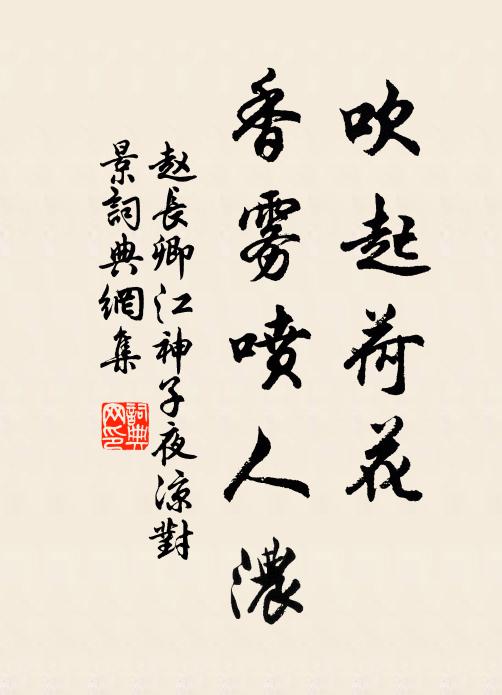 吹起荷花
香雾喷人濃
赵長卿江神子夜涼對
景詞典網集
詞典
网印